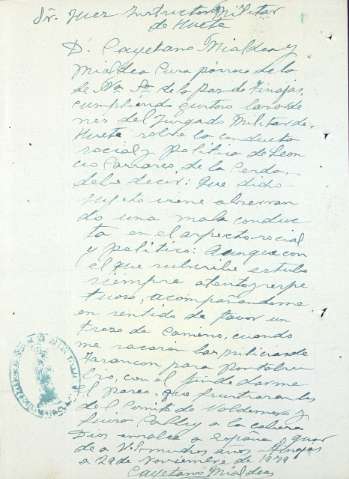 Sr. Juez Instructor Militar
de Huete
D. Cayetano Mialdea y
Mialdea Cura párroco de la
de Na. Sa. de la paz de Tinajas,
cumpliendo gustoso las orde
nes del Juzgado Militar de
Huete sobre la conducta
social y politica de Leon
cio de la Cerda,
debe decir: Que dicho
sujeto viene observan
do una mala conduc
ta en el aspecto social
y politico: Aunque con
el que subscribe estubo
siempre atento y respe
tuoso, acompañandome
en sentido de favor un
trozo de camino, cuando
me sacaron los milicianos de
Tarancon para
con el fin de darme
el paseo, que frustraron los
del Comité de Valdemoro y
Dios a España guar
de a V. S. muchos años Tinajas
a 29 de Noviembre de 1939
Cayetano Mialdea